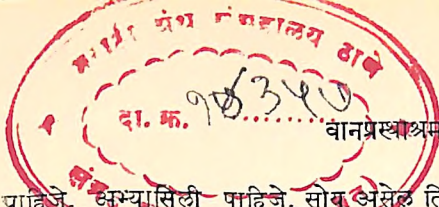 मराठी ग्रंथ संग्रहालय ठाणे
दा. क्र.
वानप्रस्थाश्रम
पाहिजे. अभ्यासिली पाहिजे. सोय असेल